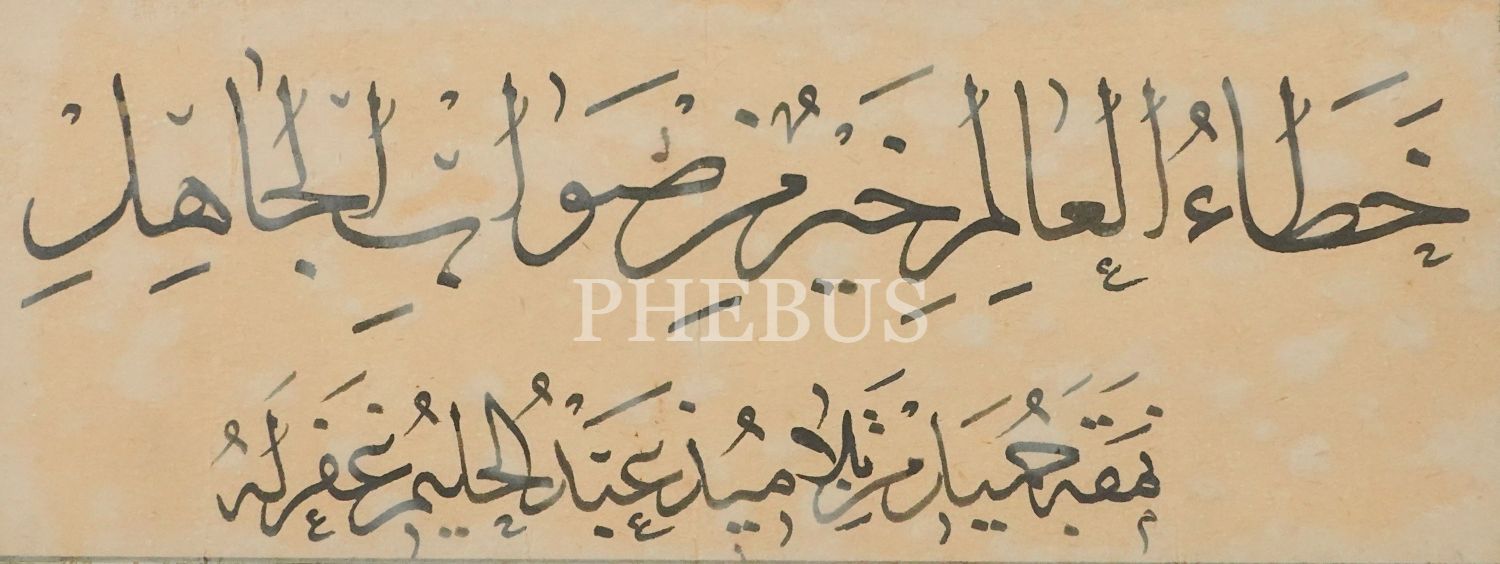 خَطَاءُ الْعَالِمِ خَيْرٌ مِنْ صَوَابِ الْجَاهِلِ
PHEBUS
نَمَقَهُ حَمِيدْ مِنْ تَلَامِيذِ عَبْدُ الْحَلِيمْ غُفِرَ لَهُ